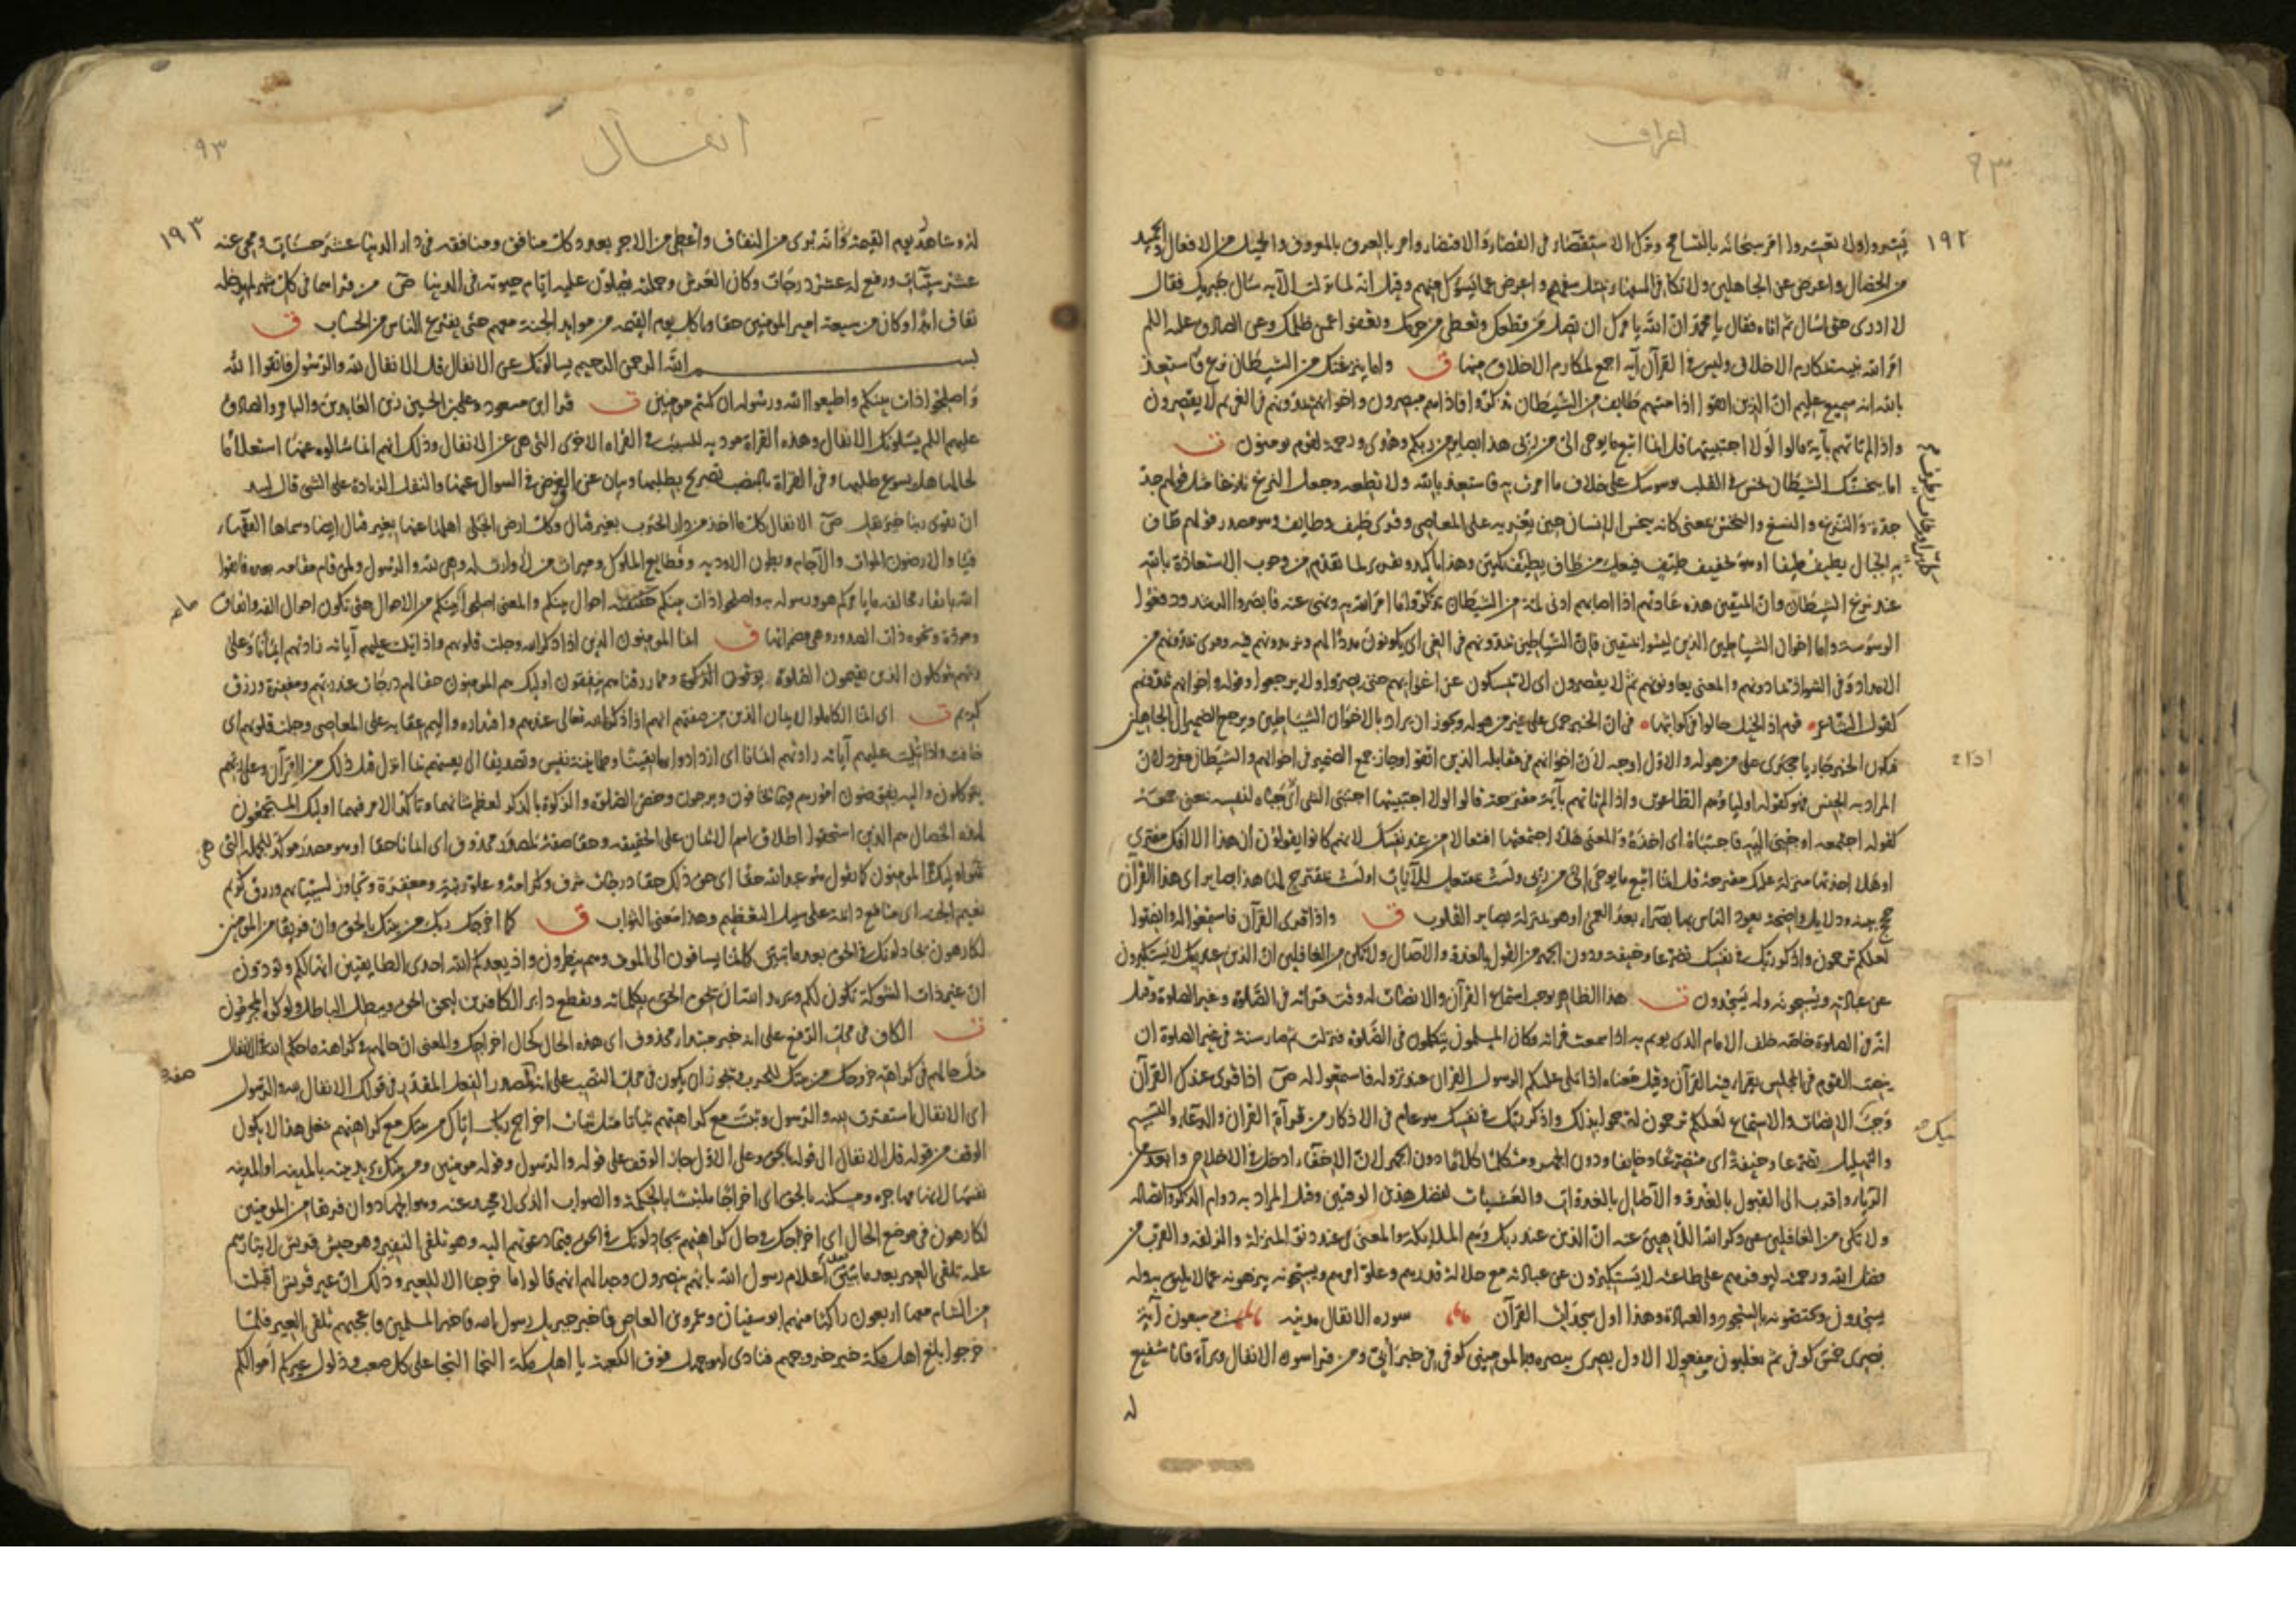 اعراف
١٩٢
يسروا ولا تعسروا امر سبحانه بالتسامح وترك الاستقصاء في القضاء والاقتضاء وامر بالعرف بالمعروف والجميل من الافعال والحميد
من الخصال واعرض عن الجاهلين ولا تكاف السفهاء بمثل سفههم واعرض عما يسوءك منهم وقيل انه لما نزلت الآيه سأل جبريل فقال
لا ادرى حتى اسال ثم اتاه فقال يا محمد ان الله يامرك ان تصل من قطعك وتعطى من حرمك وتعفو عمن ظلمك وعن الصادق عليه السلم
امر الله نبيه بمكارم الاخلاق وليس في القرآن آيه اجمع لمكارم الاخلاق منها ق واما ينزغنك من الشيطان نزغ فاستعذ
بالله انه سميع عليم ان الذين اتقوا اذا مسهم طايف من الشيطان تذكروا فاذا هم مبصرون واخوانهم يمدونهم في الغى ثم لا يقصرون
واذا لم تاتهم بآية قالوا لولا اجتبيتها قل انما اتبع ما يوحى الى من ربى هذا بصاير من ربكم وهدى ورحمة لقوم يومنون ت
اما ينخسنك الشيطان بنخس في القلب ويوسوسك على خلاف ما امرت به فاستعذ بالله ولا تطعه وجعل النزغ نازغا مثل قولهم جد
جده والنزغ والنسغ والنخس بمعنى كانه ينخس الانسان حين يغريه على المعاصى وقرى طيف وطايف وهو مصدر قولهم طاف
به الخيال يطيف طيفا او هو تخفيف طيّف فيعل من طاف يطيف كلين وهذا تاكيد وتقرير لما تقدم من وجوب الاستعاذة بالله
عند نزغ الشيطان وان المتقين هذه عادتهم اذا اصابهم ادنى لمة من الشيطان تذكروا ما امر الله به ونهى عنه فابصروا السداد ودفعوا
الوسوسة واما اخوان الشياطين الذين ليسوا بمتقين فان الشياطين يمدونهم في الغى اى يكونون مددا لهم ويمدونهم فيه وقرى يمدونهم من
الامداد وفي الشواذ يمادونهم والمعنى يعاونونهم ثم لا يقصرون اى لا يمسكون عن اغوايهم حتى يصروا ولا يرجعوا وقوله واخوانهم يمدونهم
كقول الشاعر قوم اذا الخيل جالوا في كواثبها في ان الخبر جرى على غير من هو له ويجوز ان يراد بالاخوان الشياطين ويرجع الضمير الى الجاهلين
فيكون الخبر جاريا مجرى على من هو له والاول اوجه لان اخوانهم في مقابلة الذين اتقوا وجاز جمع الضمير في اخوانهم والشيطان مفرد لان
المراد به الجنس فهو كقوله اولياؤهم الطاغوت واذا لم تاتهم بآية مقترحة قالوا لولا اجتبيتها اجتبى الشى اى جباه لنفسه بمعنى جمعه
كقوله اجتمعه او جبى اليه فاجتباه اى اخذه والمعنى هلا اجتمعتها افتعالا من عند نفسك لانهم كانوا يقولون ان هذا الا افك مفترى
او هلا اخذتها منزلة عليك مقترحة قل انما اتبع ما يوحى الى من ربى ولست بمفتعل للآيات اولست بمقترح لها هذا بصاير اى هذا القرآن
حجج بينه ودلايل واضحة يعود الناس بها بصراء بعد العمى او هو بمنزلة بصاير القلوب ق واذا قرى القرآن فاستمعوا له وانصتوا
لعلكم ترحمون واذكر ربك في نفسك تضرعا وخيفة ودون الجهر من القول بالغدو والآصال ولا تكن من الغافلين ان الذين عند ربك لا يستكبرون
عن عبادته ويسبحونه وله يسجدون ت هذا الظاهر يوجب استماع القرآن والانصات له وقت قراته في الصلوة وغير الصلوة وقيل
انه في الصلوة خاصه خلف الامام الذى يوتم به اذا سمعت قراته وكان المسلمون يتكلمون في الصلوة فنزلت ثم صار سنة في غير الصلوة ان
ينصت القوم في المجلس يقراء فيه القرآن وقيل معناه اذا تلى عليكم الرسول القران عند نزوله فاستمعوا له ص اذا قرى عندك القرآن
وجب الانصات والاستماع لعلكم ترحمون لترحموا بذلك واذكر ربك في نفسك هو عام في الاذكار من قرآة القران والدعاء والتسبيح
والتهليل تضرعا وخيفة اى متضرعا وخايفا ودون الجهر ومتكلما كلاما دون الجهر لان الاخفاء ادخل في الاخلاص وابعد من
الرياء واقرب الى القبول بالغدو والآصال بالغدوات والعشيات لفضل هذين الوقتين وقيل المراد به دوام الذكر واتصاله
ولا تكن من الغافلين عن ذكر الله اللاهين عنه ان الذين عند ربك وهم الملايكة والمعنى عند دنو المنزلة والزلفة والقرب من
فضل الله ورحمته لتوفرهم على طاعته لا يستكبرون عن عبادته مع جلالة قدرهم وعلو امرهم ويسبحونه ينزهونه عما لا يليق به وله
يسجدون ويختصونه بالسجود والعبادة وهذا اول سجدات القرآن سوره الانفال مدنيه سبعون آية
بصرى خمس كوفى ثم يغلبون مفعولا الاول بصرى بنصره وبالمومنين كوفى في خبر أبى ومن قرا سوره الانفال وبرآة فانا شفيع
له
انفال
٩٣
١٩٣
له وشاهد يوم القيمة وانه برى من النفاق واعطى من الاجر بعدد كل منافق ومنافقه في دار الدنيا عشر حسنات ومحى عنه
عشر سيّآت ورفع له عشر درجات وكان العرش وحملته يصلون عليه ايام حيوته في الدنيا ص من قراهما في كل شهر لم يدخله
نفاق ابدا وكان من شيعة امير المومنين حقا وياكل يوم القيمه من موايد الجنة معهم حتى يفرغ الناس من الحساب ق
بسم الله الرحمن الرحيم يسالونك عن الانفال قل الانفال لله والرسول فاتقوا الله
واصلحوا ذات بينكم واطيعوا الله ورسوله ان كنتم مومنين ت قرا ابن مسعود وعلى بن الحسين زين العابدين والباقر والصادق
عليهم السلم يسلونك الانفال وهذه القراة مودية للسبب في القراه الاخرى التى هى عن الانفال وذلك انهم انما سالوه عنها استعلاما
لحالها هل يسوغ طلبها وفي القراة بالنصب تصريح بطلبها وبيان عن الغرض في السوال عنها والنفل الزيادة على الشى قال لبيد
ان تقوى ربنا خير نفل ص الانفال كل ما اخذ من دار الحرب بغير قتال وكل ارض انجلى اهلها عنها بغير قتال ايضا وسماها الفقهاء
فيئا والارضون الموات والآجام وبطون الاوديه وقطايع الملوك وميراث من لا وارث له وهى لله والرسول ولمن قام مقامه بعده فاتقوا
الله باتقاء مخالفة ما يامركم هو ورسوله به واصلحوا ذات بينكم حقيقته احوال بينكم والمعنى اصلحوا ما بينكم من الاحوال حتى تكون احوال الفه واتفاق
ومودة ونحوه ذات الصدور وهى مضمراتها ق انما المومنون الذين اذا ذكر الله وجلت قلوبهم واذا تليت عليهم آياته زادتهم ايمانا وعلى
ربهم يتوكلون الذين يقيمون الصلوة ومما رزقناهم ينفقون اوليك هم المومنون حقا لهم درجات عند ربهم ومغفرة ورزق
كريم ت اى انما الكاملوا الايمان الذين من صفتهم انهم اذا ذكر الله تعالى عندهم واقتداره واليم عقابه على المعاصى وجلت قلوبهم اى
خافت واذا تليت عليهم آياته زادتهم ايمانا اى ازدادوا بها يقينا وطمانينة نفس وتصديقا الى يقينهم بما انزل قبل ذلك من القرآن وعلى ربهم
يتوكلون واليه يفوضون امورهم فيما يخافون ويرجون وخص الصلوة والزكوة بالذكر لعظم شانهما وتاكد الامر فيهما اوليك المستجمعون
لهذه الخصال هم الذين استحقوا اطلاق اسم الايمان على الحقيقه وحقا صفة لمصدر محذوف اى ايمانا حقا او هو مصدر موكد للجمله التى هى
اوليك هم المومنون كما تقول هو عبد الله حقا اى حق ذلك حقا درجات شرف وكرامة وعلو رتبة ومغفرة وتجاوز لسيياتهم ورزق كريم
نعيم الجنه اى منافع دايمة على سبيل التعظيم وهذا معنى الثواب ق كما اخرجك ربك من بيتك بالحق وان فريقا من المومنين
لكارهون يجادلونك في الحق بعد ما تبين كانما يساقون الى الموت وهم ينظرون واذ يعدكم الله احدى الطايفتين انها لكم وتودون
ان غير ذات الشوكة تكون لكم ويريد الله ان يحق الحق بكلماته ويقطع دابر الكافرين ليحق الحق ويبطل الباطل ولو كره المجرمون
ت الكاف في محل الرفع على انه خبر مبتداء محذوف اى هذه الحال كحال اخراجك والمعنى ان حالهم في كراهة ما حكم الله في الانفال
مثل حالهم في كراهة خروجك من بيتك للحرب ويجوز ان يكون في محل النصب على انه صفة مصدر الفعل المقدر في قولك الانفال لله والرسول
اى الانفال استقرت لله والرسول وثبت مع كراهتهم ثباتا مثل ثبات اخراج ربك اياك من بيتك مع كراهتهم فعلى هذا لا يكون
الوقف من قوله قل الانفال الى قوله بالحق وعلى الاول جاز الوقف على قوله والرسول وقوله مومنين ومن بيتك يريد بيته بالمدينه او المدينه
نفسها لانها مهاجره ومسكنه بالحق اى اخراجا ملتبسا بالحكمة والصواب الذى لا محيد عنه وهو الجهاد وان فريقا من المومنين
لكارهون في موضع الحال اى اخرجك في حال كراهتهم يجادلونك في الحق فيما دعوتهم اليه وهو تلقى النفير وهو جيش قريش لايثارهم
عليه تلقى العير بعد ما تبين بعد اعلام رسول الله بانهم ينصرون وجدالهم انهم قالوا ما خرجنا الا للعير وذلك ان عير قريش اقبلت
من الشام معها اربعون راكبا منهم ابو سفيان وعمرو بن العاص فاخبر جبريل رسول الله فاخبر المسلمين فاعجبهم تلقى العير فلما
خرجوا بلغ اهل مكة خبر خروجهم فنادى ابو جهل فوق الكعبة يا اهل مكة النجا النجا على كل صعب وذلول عيركم اموالكم